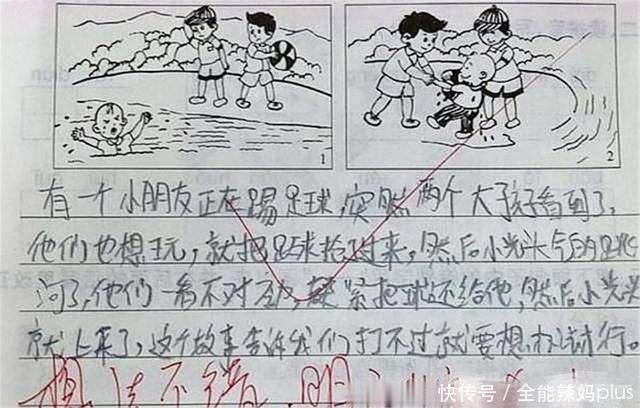 1
2
有一个小朋友正在踢足球,突然两个大孩看到了,
他们也想玩,就把足球抢过来,然后小光头气的跳
河了,他们一看不对劲,紧把球还给他,然后小光头
就上来了,这个故事告诉我们打不过就要想办法行。
想法不错,明
快传号/全能辣妈plus